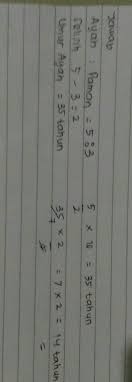 Jawab
Ayah : Paman = 5 : 3
Selisih 5 - 3 = 2
Umur Ayah = 35 tahun
5/2 × = 35 tahun
35 × 2/5 = 7 × 2 = 14 tahun